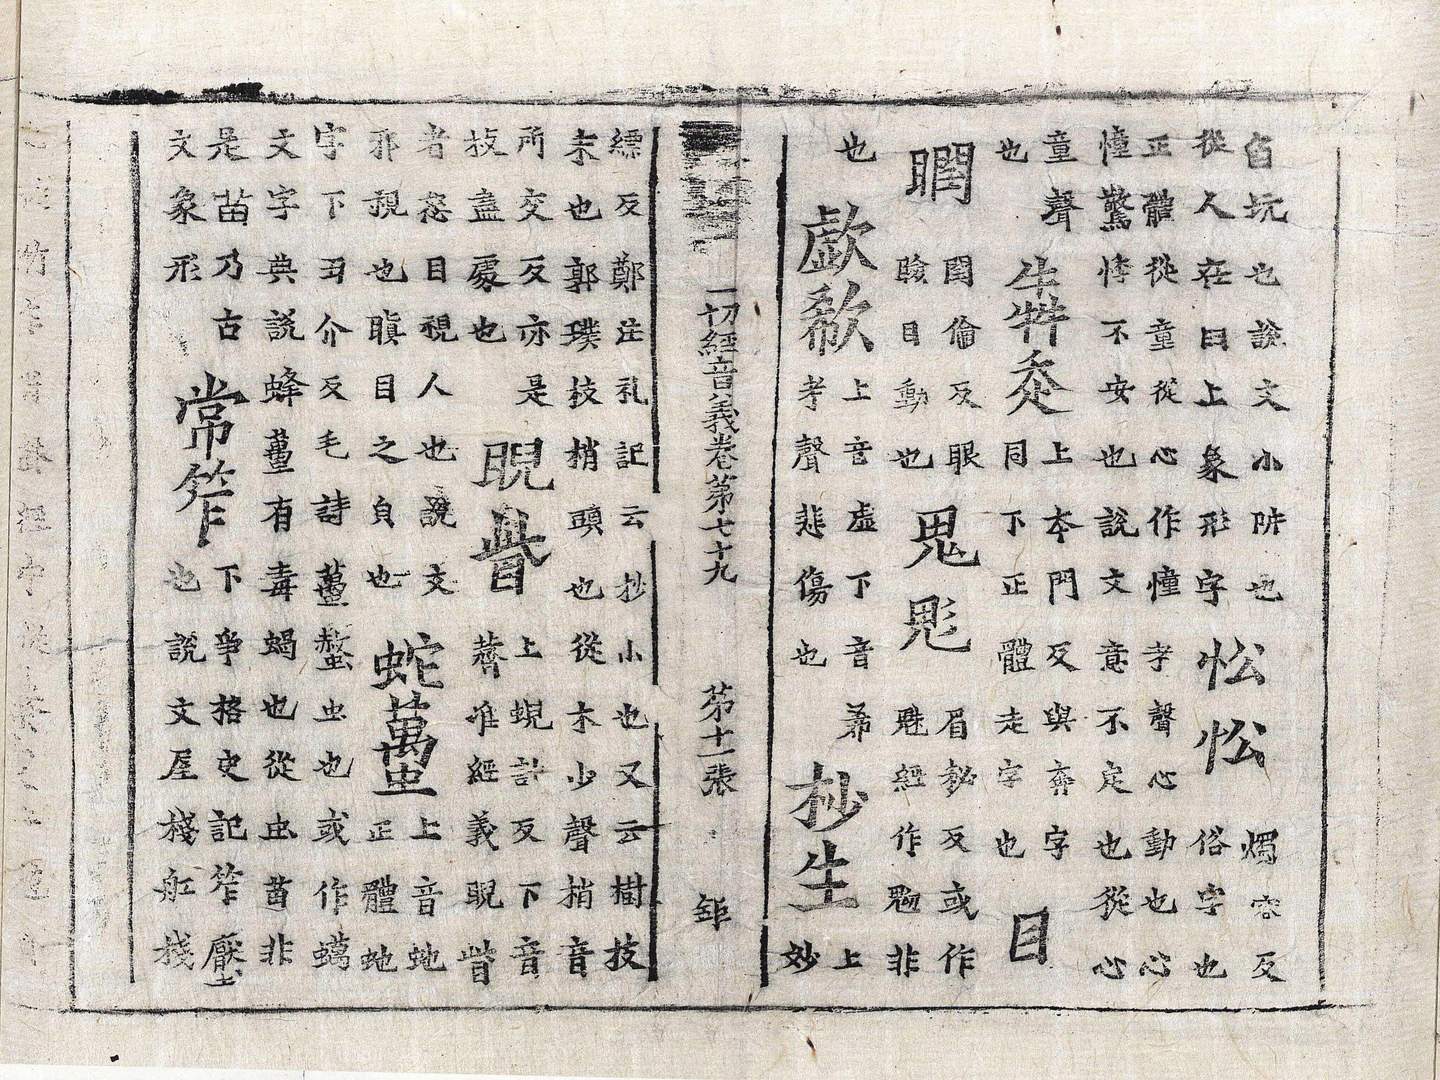 臽坑也說文小阱也
從人在臼上象形字
忪忪
燭容反
俗字也
正體從童從心作憧考聲心動也心
憧驚悸不安也說文意不定也從心
童聲
也
犇赱
上本門反與奔字
同下正體走字也
目
瞤
閏倫反眼
瞼目動也
鬼鬽
眉秘反或作
魅經作魎非
也
歔欷
上音虛下音希
考聲悲傷也
杪生
上
妙
一切經音義卷第七十九 第十一張 鉅
縹反鄭注礼記云杪小也又云樹技
末也郭璞技梢頭也從木少聲梢音
所交反亦是
技盡處也
睨眥
上蜺計反下音
薺准經義睨眥
者恣目視人也說文
邪視也瞋目之皃也
蛇蠆
上音虵
正體虵
字下丑介反毛詩蠆螫虫也或作蠇
文字典說蜂蠆有毒蝎也從虫苗非
是苗乃古
文象形
常笮
下爭格史記笮壓
也說文屋棧舡棧